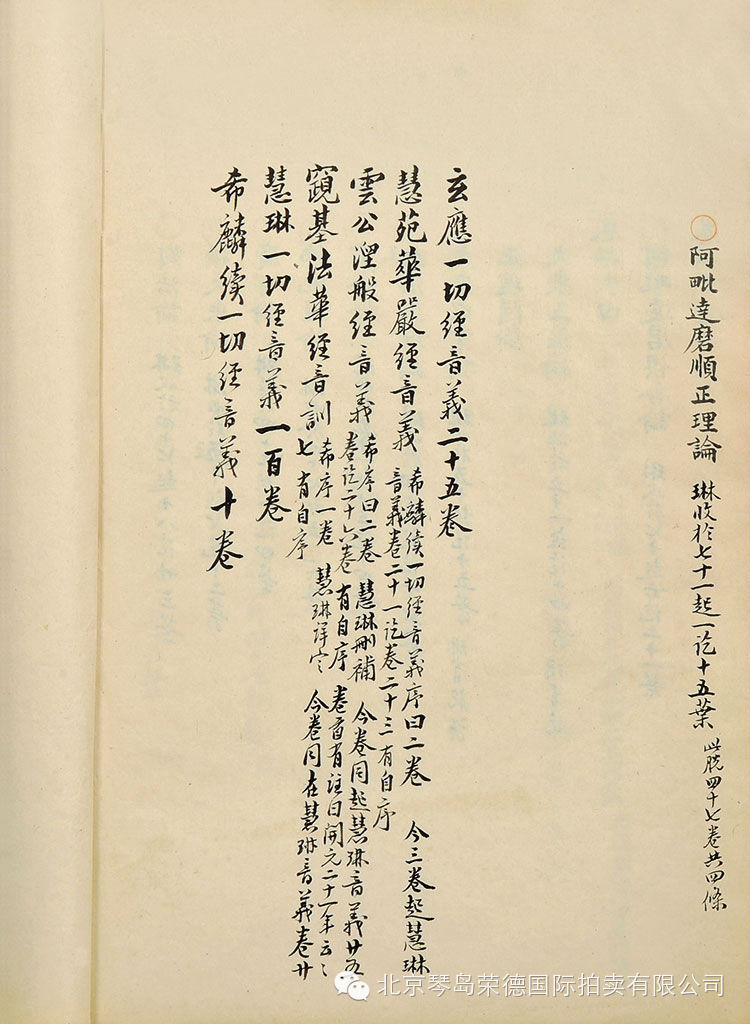 ○阿毗達磨順正理論 琳收於七十一起一訖十五葉 此脫四十七卷共四條
玄應一切經音義二十五卷
慧苑華嚴經音義 希麟續一切經音義序曰二卷 今三卷起慧琳
音義卷二十一訖卷二十三有自序
雲公涅般經音義 希序曰二卷 慧琳刪補 今卷同起慧琳音義廿五
卷訖二十六卷 有自序 卷首有註曰開元二十一年云〻
窺基法華經音訓 希序一卷 慧琳詳定 今卷同在慧琳音義卷廿
七 有自序
慧琳一切經音義一百卷
希麟續一切經音義十卷
北京琴岛荣德国际拍卖有限公司